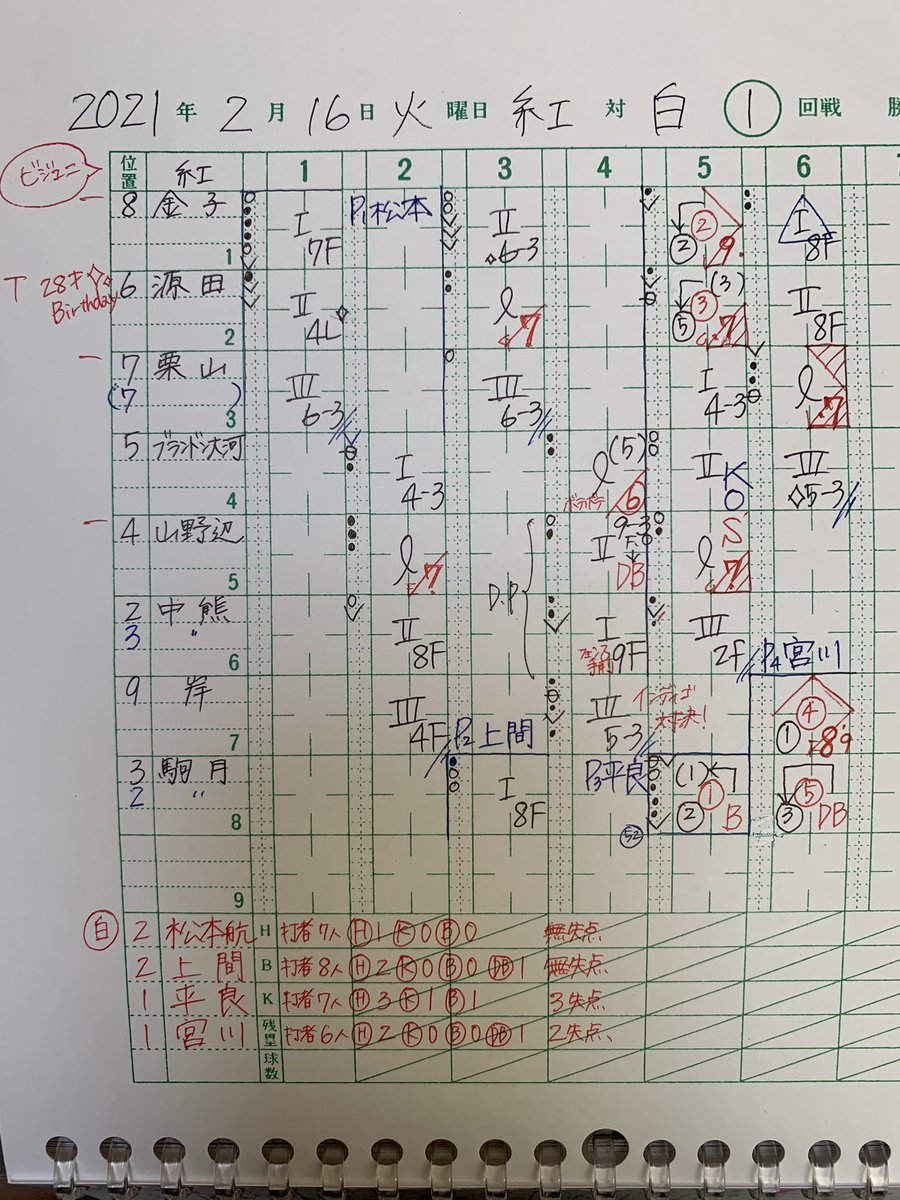 2021年 2月 16日 火曜日 紅 対 白 ① 回戦
ビジュニ
位置 紅 1 2 3 4 5 6
8 金子 1 I 7F P1松本 II 6-3 ② ② 9. I 8F
T 28才 Birthday
6 源田 2 II 4L 7 (3) ③ ⑤ 7 II 8F
7 栗山 (7 ) 3 III 6-3 III 6-3 I 4-3 7
5 ブランドン大河 4 I 4-3 (5) ボテボテ 6 II K III 5-3
4 山野辺 5 7 D.P 9-3 II F.O DB S 7
2 中熊 3 〃 6 II 8F I フェンス手前 9F III 2F P4宮川
9 岸 7 III 4F P2上間 III 5-3 インディゴ対決! ④ ① 8 9
3 駒月 2 〃 8 I 8F P3平良 52 (1) ① ② B ⑤ ③ DB
9
白 2 松本航 H 打者7人 H1 K0 B0 無失点
2 上間 B 打者8人 H2 K0 B0 DB1 無失点
1 平良 K 打者7人 H3 K1 B1 3失点
1 宮川 残塁 打者6人 H2 K0 B0 DB1 2失点
球数